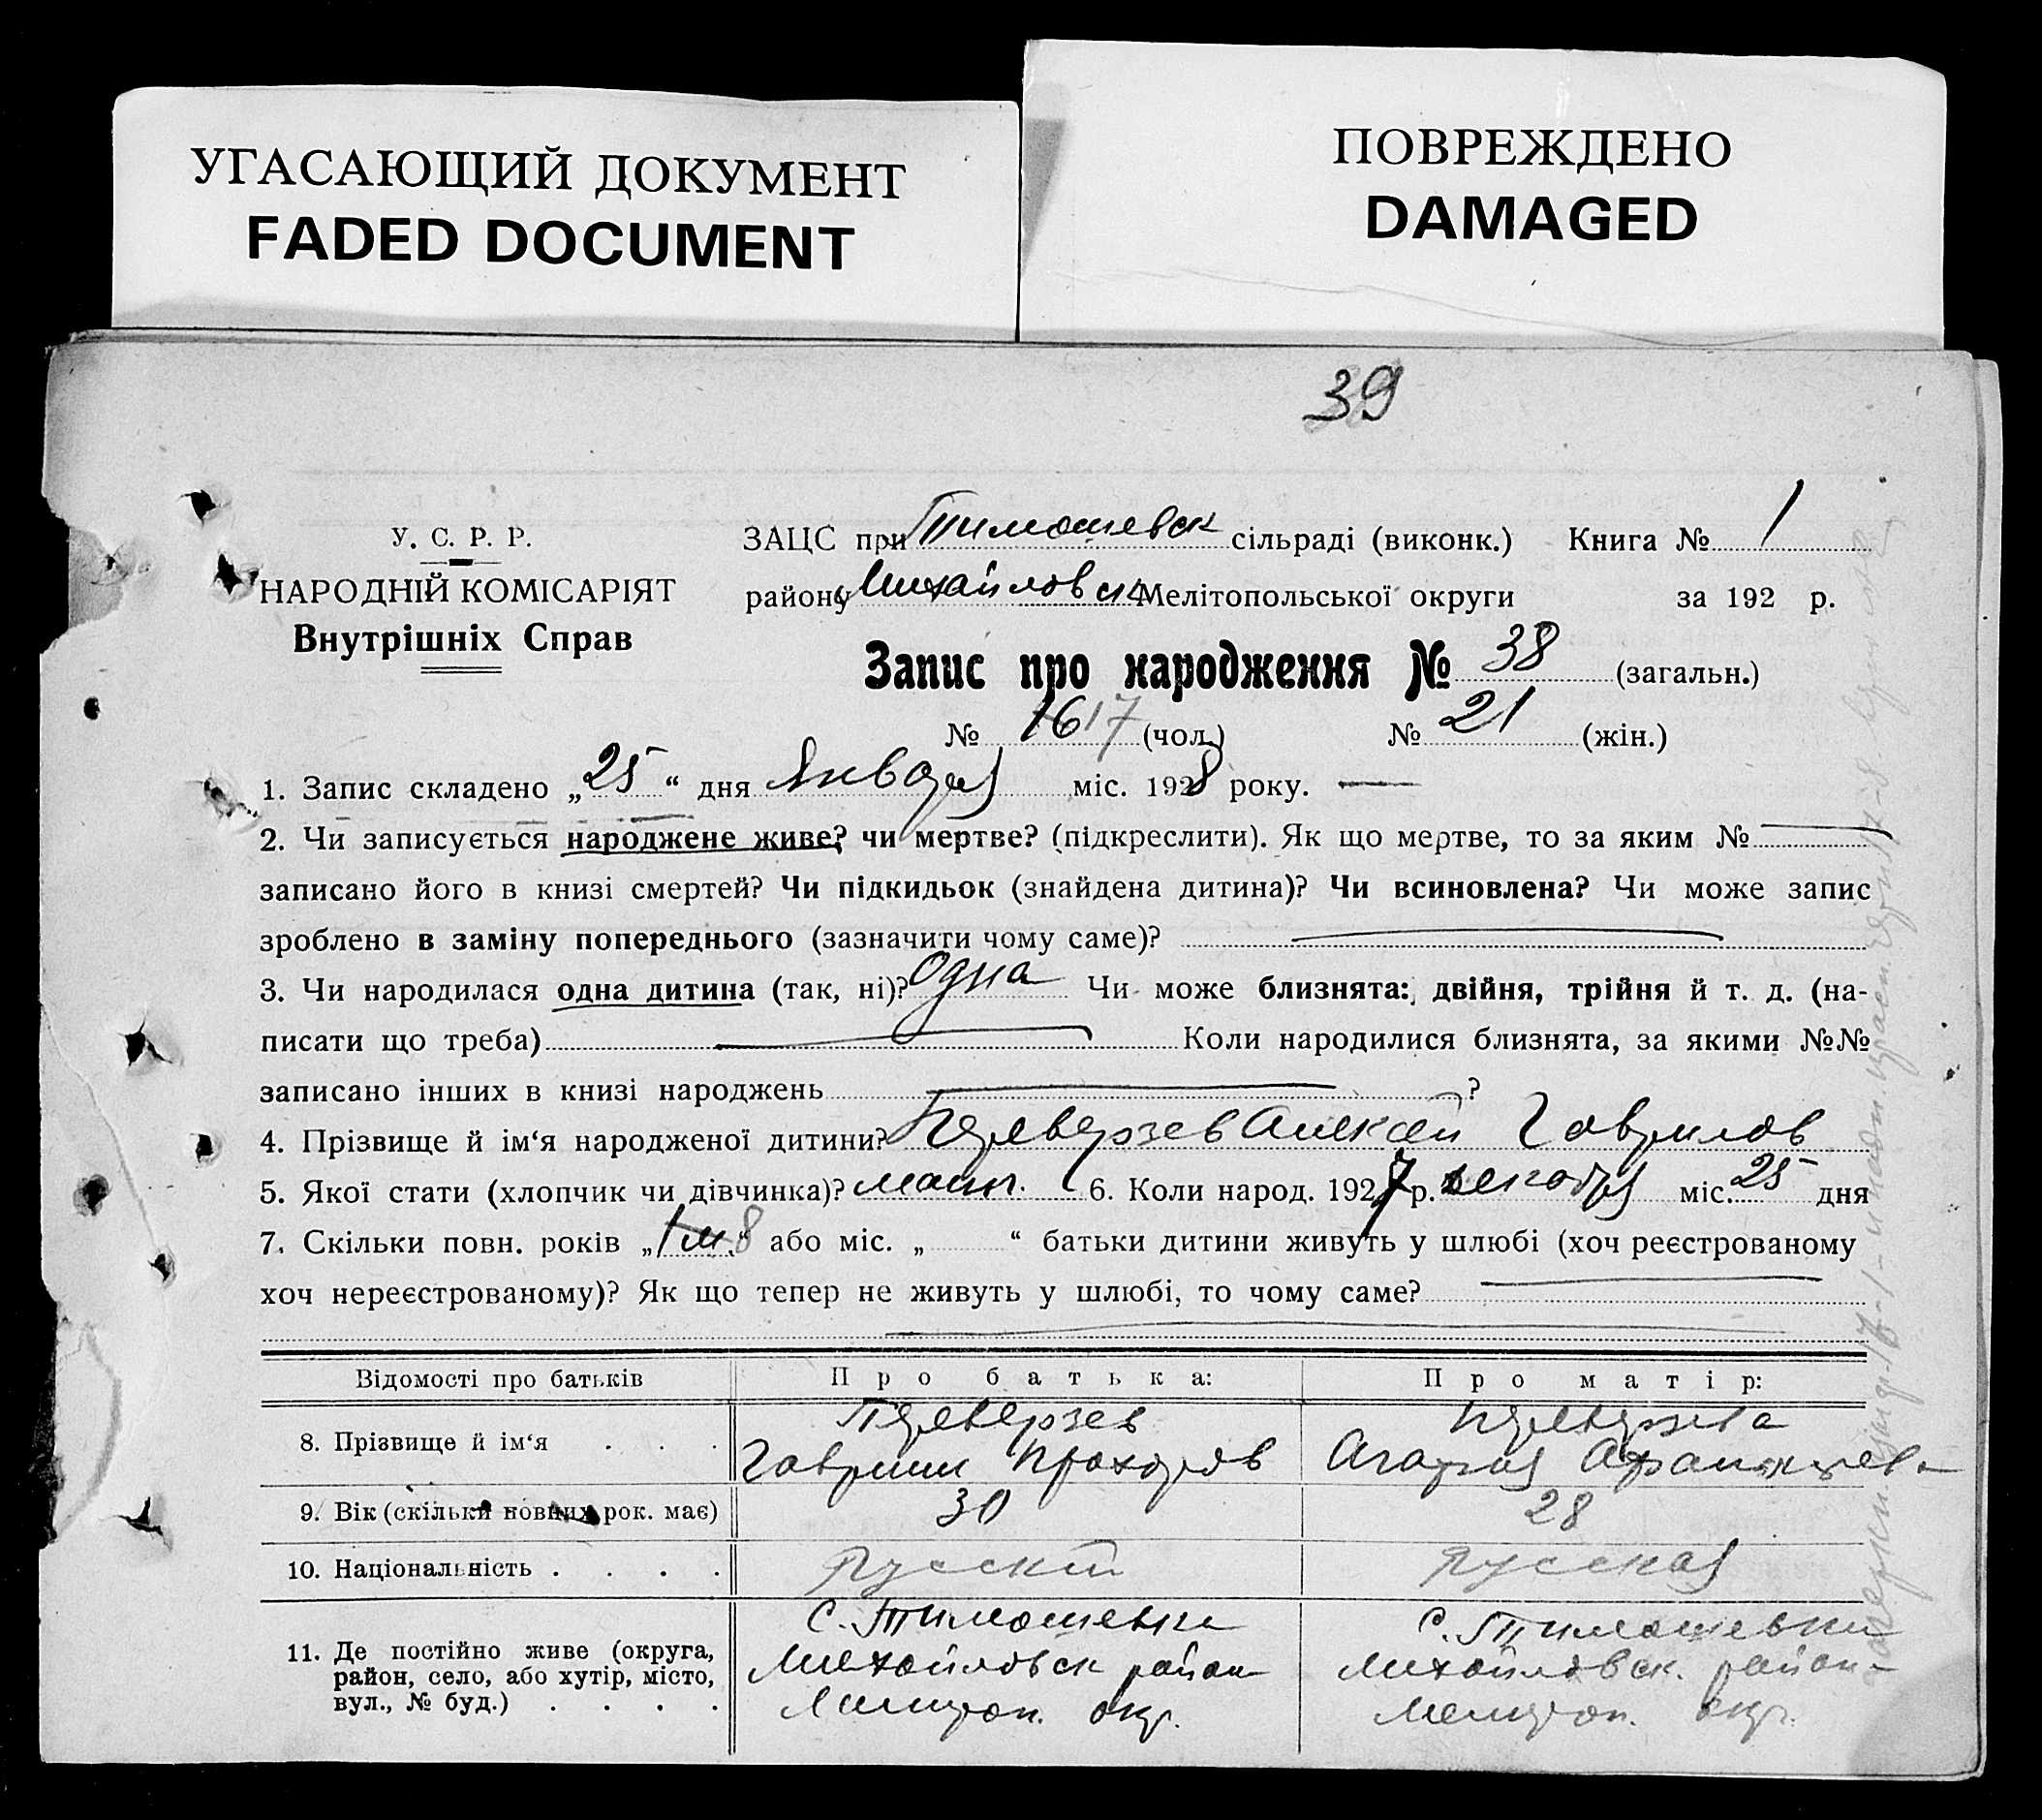 УГАСАЮЩИЙ ДОКУМЕНТ
FADED DOCUMENT
ПОВРЕЖДЕНО
DAMAGED
39
У. С. Р. Р.
НАРОДНІЙ КОМІСАРІЯТ
Внутрішніх Справ
ЗАЦС при Тимошевск сільраді (виконк.) Книга № 1
району Михайловск Мелітопольської округи за 192 р.
Запис про народження № 38 (загальн.)
№ 16 17 (чол.) № 21 (жін.)
1. Запис складено „25“ дня Января міс. 1928 року.
2. Чи записується народжене живе? чи мертве? (підкреслити). Як що мертве, то за яким №
записано його в книзі смертей? Чи підкидьок (знайдена дитина)? Чи всиновлена? Чи може запис
зроблено в заміну попереднього (зазначити чому саме)?
3. Чи народилася одна дитина (так, ні)? Одна Чи може близнята: двійня, трійня й т. д. (на-
писати що треба) Коли народилися близнята, за якими №№
записано інших в книзі народжень ?
4. Прізвище й ім‘я народженої дитини? Переверзев Алексей Гаврилов
5. Якої стати (хлопчик чи дівчинка)? мальч. 6. Коли народ. 1927 р. декабря міс. 25 дня
7. Скільки повн. років „ “ або міс. „ “ батьки дитини живуть у шлюбі (хоч реєстрованому
хоч нереєстрованому)? Як що тепер не живуть у шлюбі, то чому саме?
Відомості про батьків Про батька: Про матір:
8. Прізвище й ім‘я . . . Переверзев Переверзева
Гавриил Прохоров Агафия
9. Вік (скільки повних рок. має) 30 28
10. Національність . . . . Русский Русская
11. Де постійно живе (округа, район, село, або хутір, місто, вул., № буд.) . . . .
С. Тимошевка С. Тимошевка
Михайловск район Михайловск. район
Мелитоп. окр. Мелитоп. окр.